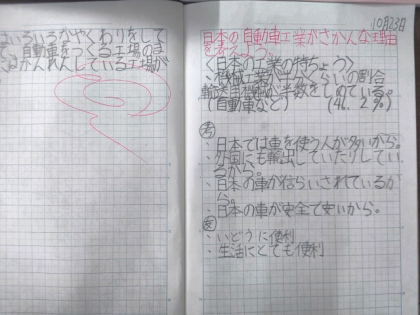 はいろいろなやくわりをして
自動車をつくる工場のま
かんれんしている工場が
10月23日
日本の自動車工業がさかんな理由
を考えよう。
〈日本の工業の特ちょう〉
・機械工業が半分くらいの割合
輸送用機械が半数をしめている。
(自動車など) (46.2%)
考
・日本では車を使う人が多いから。
・外国にも輸出していたりしてい
るから。
・日本の車が信らいされているか
ら。
・日本の車が安全で安いから。
・いどうに便利
・生活にとても便利